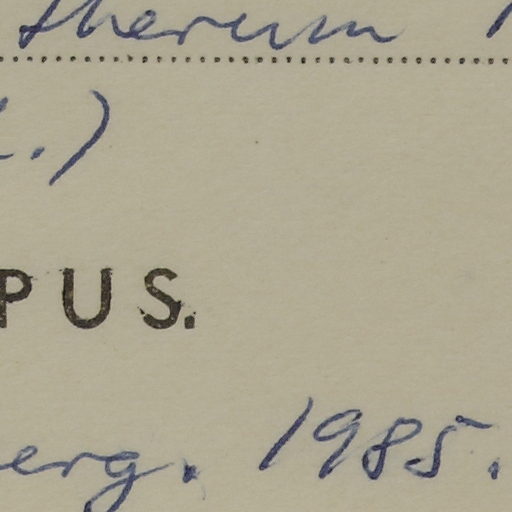 therum
.)
PUS.
erg. 1985.